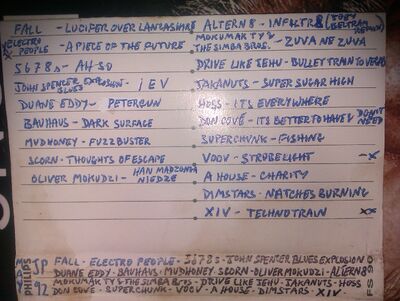 FALL - LUCIFER OVER LANCASHIRE
ELECTRO PEOPLE - A PIECE OF THE FUTURE
5678s - AH-SO
JOHN SPENCER BLUES EXPLOSION - ; EV
DUANE EDDY - PETERGUN
BAUHAUS - DARK SURFACE
MUDHONEY - FUZZBUSTER
SCORN - THOUGHTS OF ESCAPE
OLIVER MOKUDZI - HAN MADZONGA NIEDZE
ALTERN 8 - INFILTR8 (JOEY BELTRAM REMIX)
MOKUMAKTY & THE SIMBA BROS. - ZUVA NE ZUVA
DRIVE LIKE JEHU - BULLET TRAIN TO VEGAS
JAKANUTS - SUPER SUGAR HIGH
HOSS - IT'S EVERYWHERE
DON COVÉ - ITS BETTER TO HAVE & DON'T NEED
SUPERCHUNK - FISHING
VOOV - STROBELIGHT -X
A HOUSE - CHARITY
DIMSTARS - NATCHES BURNING
XIV - TECHNOTRAIN XX
MAY 92
PHILIPS
JP
FALL - ELECTRO PEOPLE - 5678s - JOHN SPENCER BLUES EXPLOSION
DUANE EDDY - BAUHAUS - MUDHONEY SCORN - OLIVER MOKUDZI - ALTERN8
MOKUMAKTY & THE SIMBA BROS - DRIVE LIKE JEHU - JAKANUTS - HOSS
DON COVE - SUPERCHUNK - VOOV - A HOUSE - DIMSTARS - XIV -